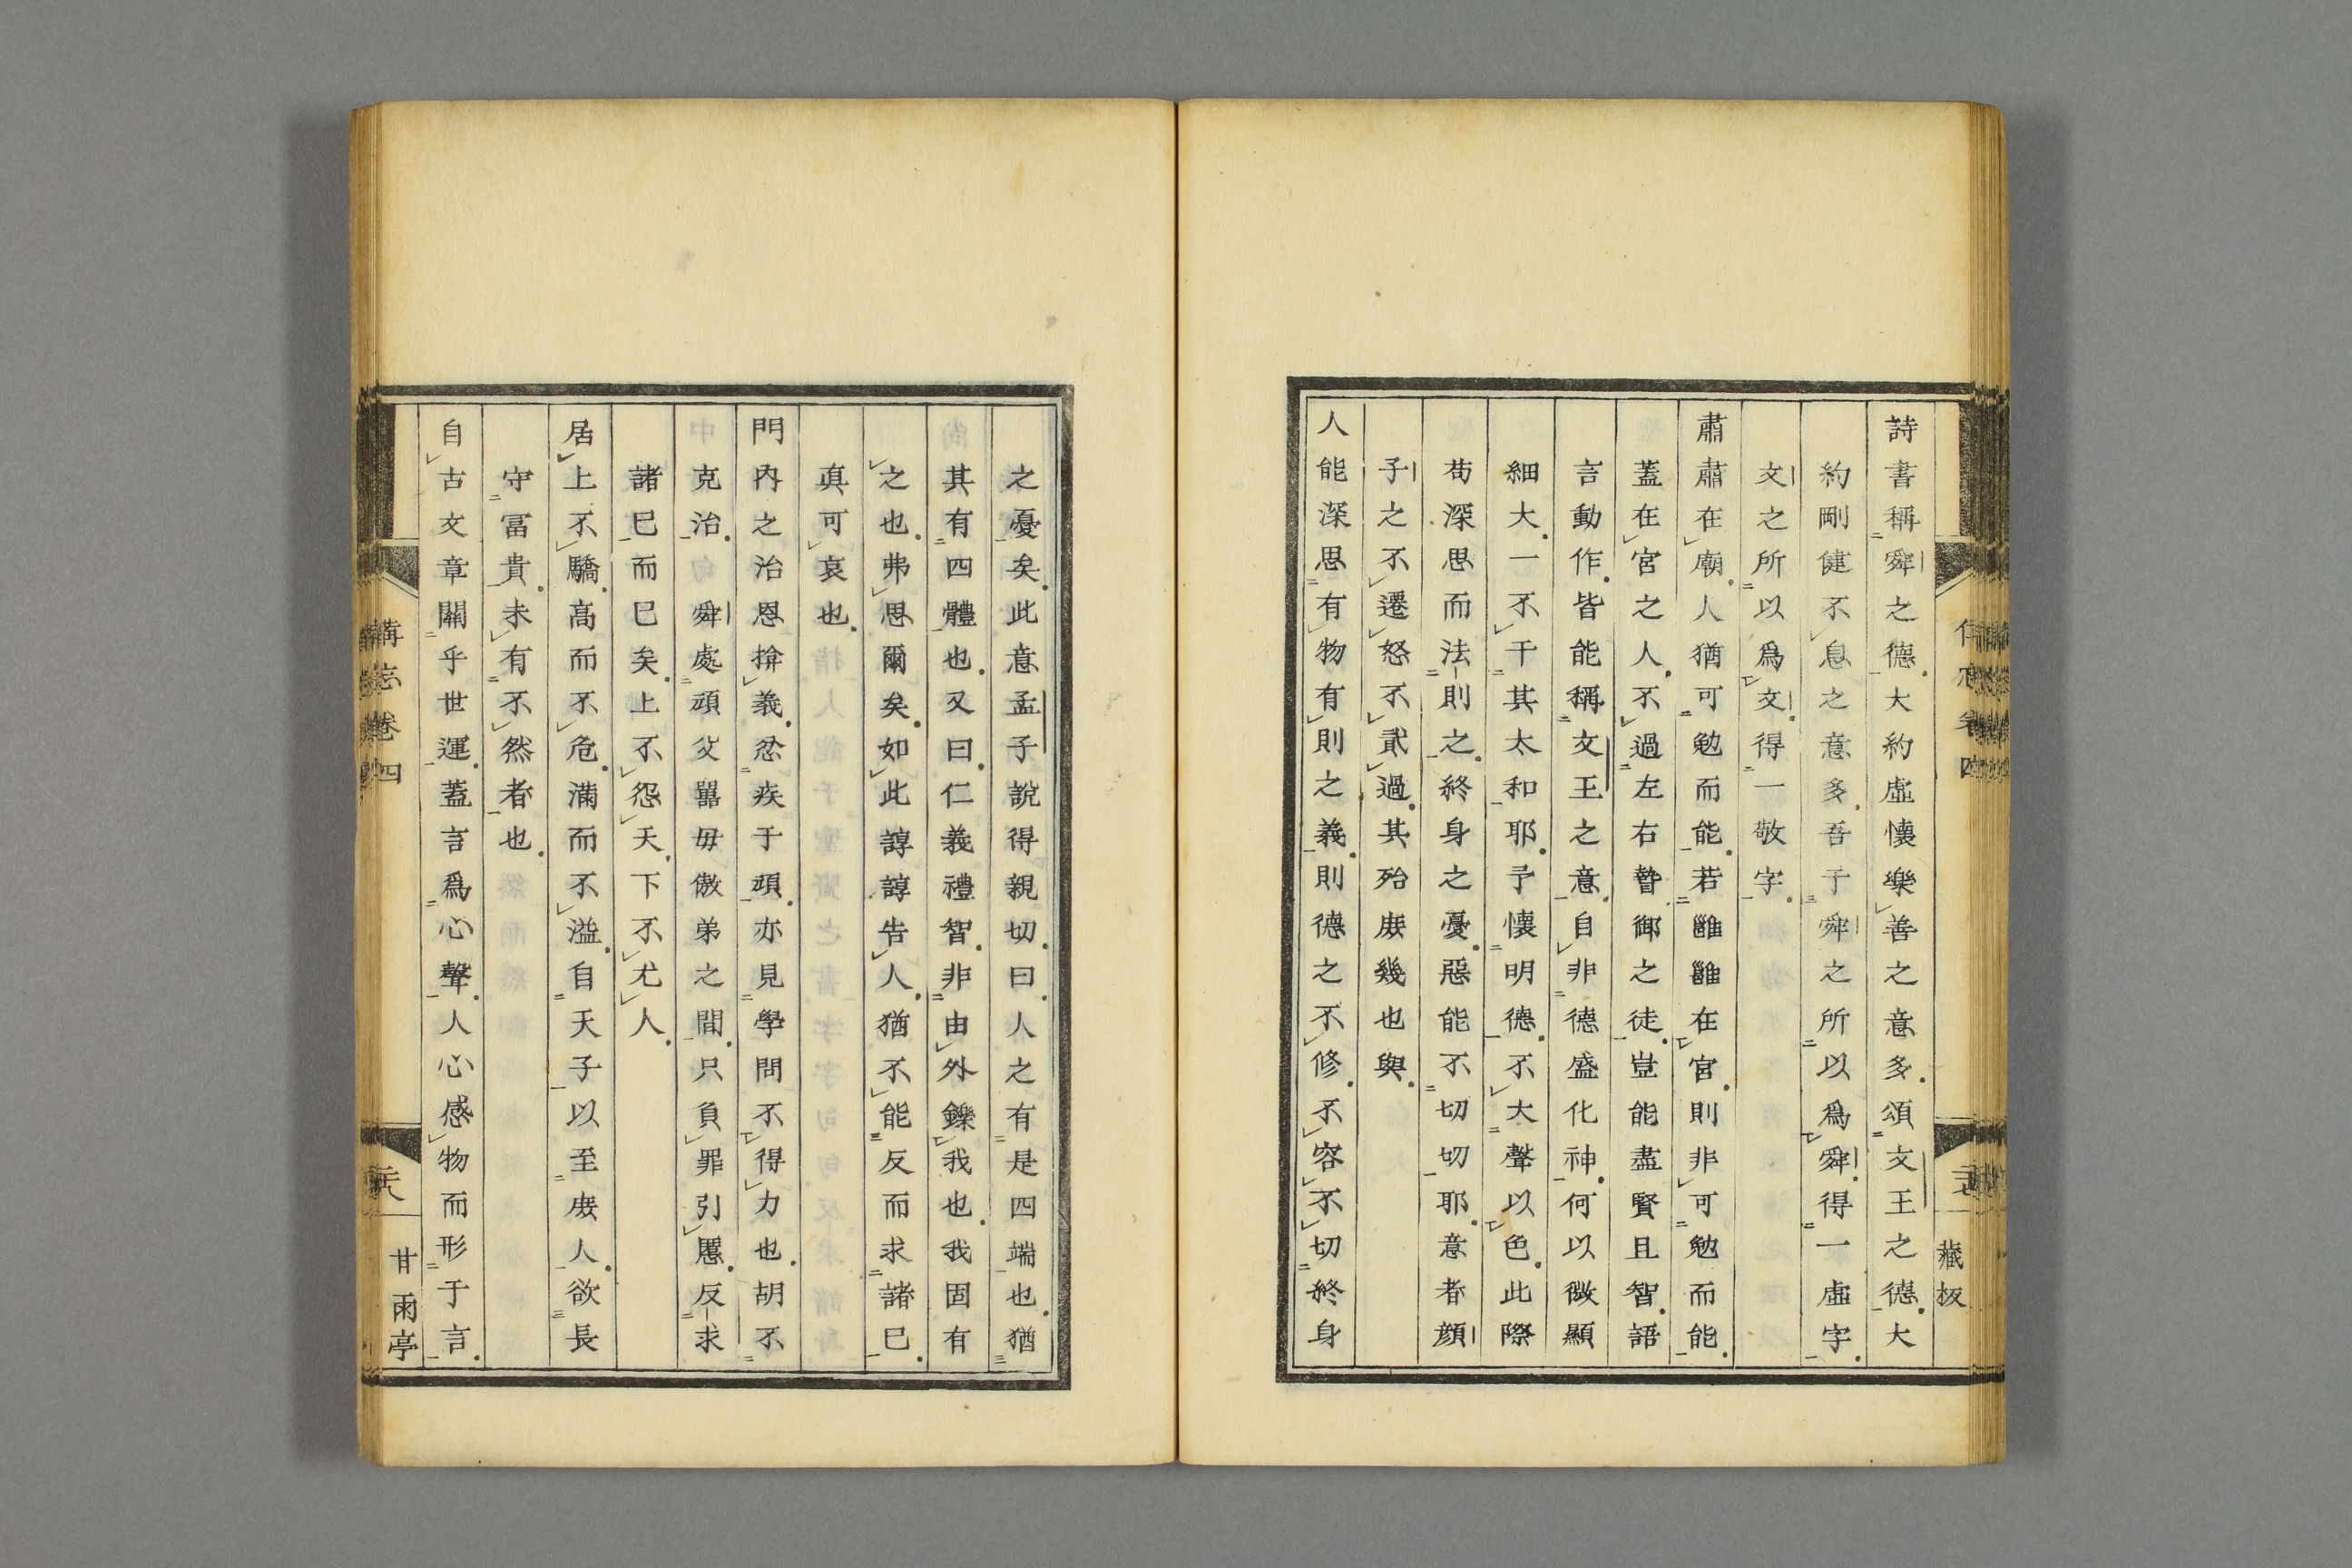 詩書稱舜之德大約虛懷樂善之意多頌文王之德大
約剛健不息之意多吾于舜之所以爲舜得一虛字
文之所以爲文得一敬字
肅肅在廟人猶可勉而能若雝雝在宮則非可勉而能
蓋在宮之人不過左右暬御之徒豈能盡賢且智語
言動作皆能稱文王之意自非德盛化神何以微顯
細大一不干其太和耶予懷明德不大聲以色此際
苟深思而法則之終身之憂惡能不切切耶意者顏
子之不遷怒不貳過其殆庶幾也與
人能深思有物有則之義則德之不修不容不切終身
藏板
之憂矣此意孟子說得親切曰人之有是四端也猶
其有四體也又曰仁義禮智非由外鑠我也我固有
之也弗思爾矣如此諄諄告人猶不能反而求諸已
真可哀也
門內之治恩揜義忿疾于頑亦見學問不得力也胡不
克治舜處頑父嚚毋傲弟之間只負罪引慝反求
諸已而已矣上不怨天下不尤人
居上不驕高而不危滿而不溢自天子以至庶人欲長
守富貴未有不然者也
自古文章關乎世運蓋言爲心聲人心感物而形于言
備忘卷四
二十八
甘雨亭